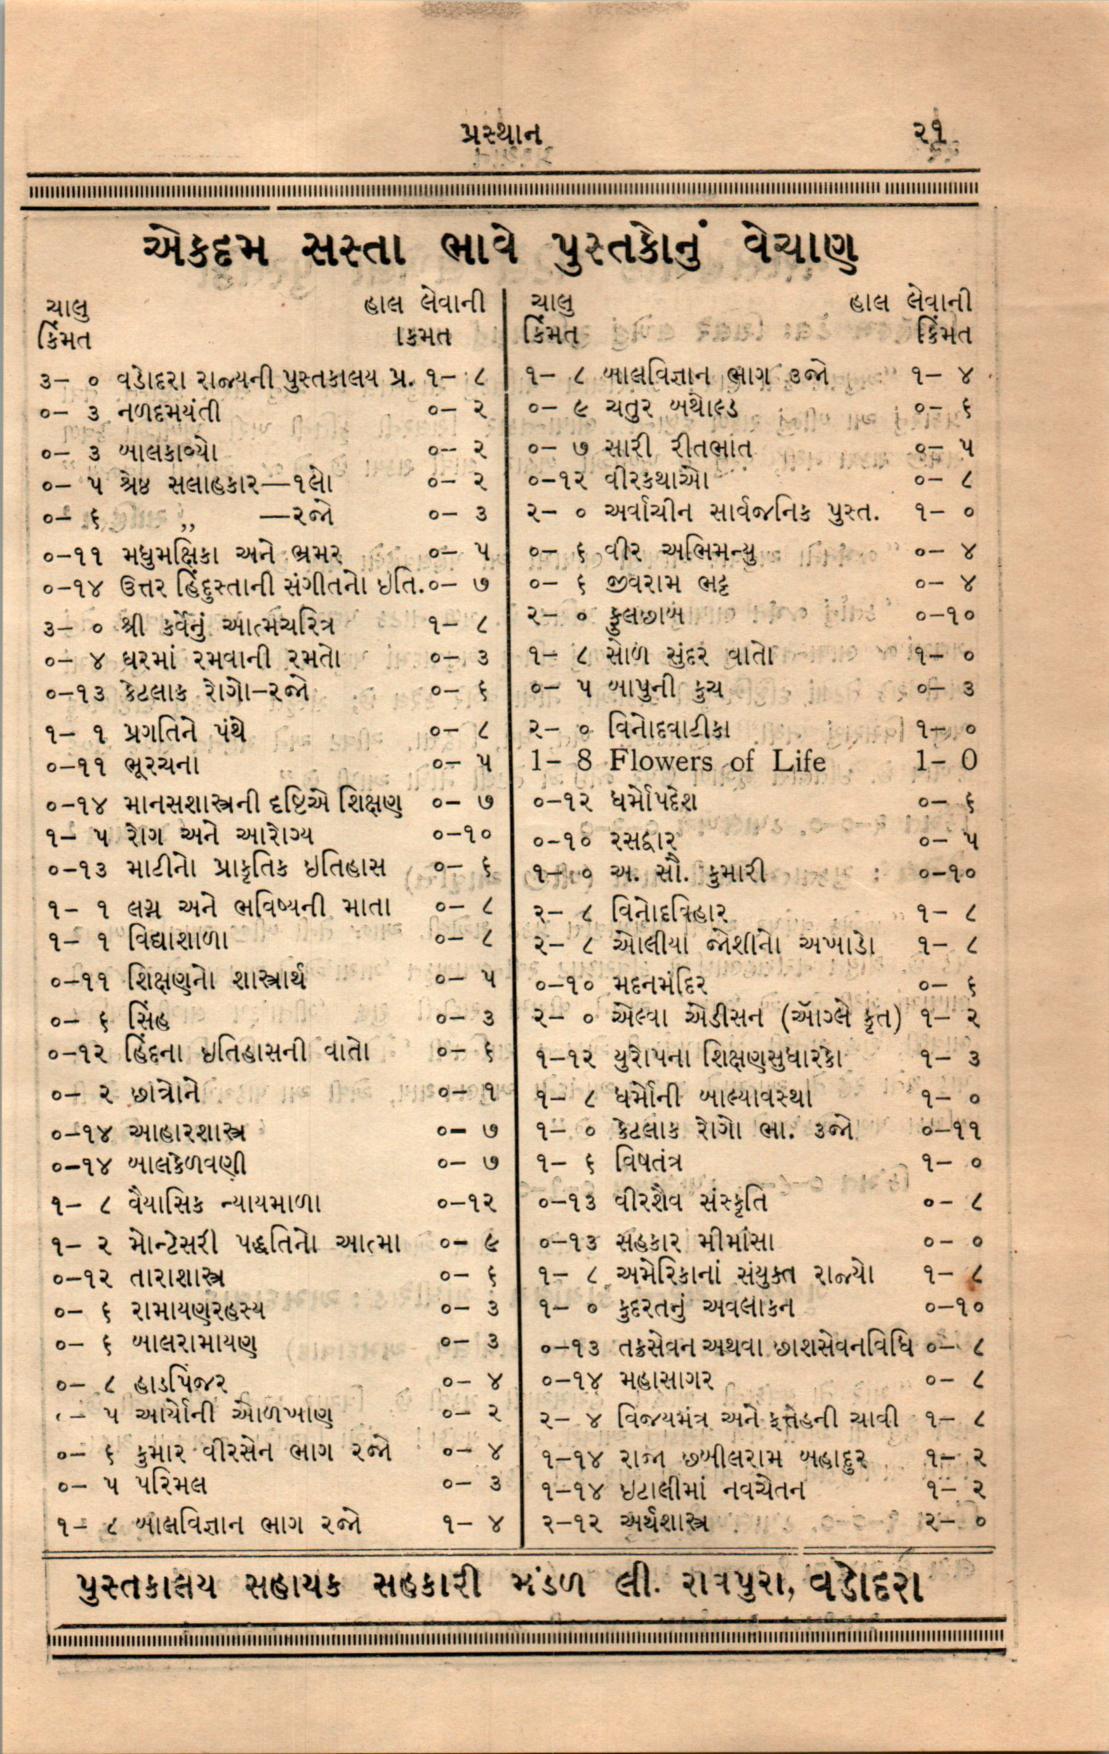 પ્રસ્થાન ૨૧
એકદમ સસ્તા ભાવે પુસ્તકોનું વેચાણ
ચાલુ હાલ લેવાની
કિંમત કિમત
૩– ૦ વડોદરા રાજ્યની પુસ્તકાલય પ્ર. ૧– ૮
૦– ૩ નળદમયંતી ૦– ૨
૦– ૩ બાલકાવ્યો ૦– ૨
૦– ૫ શ્રેષ્ઠ સલાહકાર—૧લો ૦– ૨
૦– ૬ ,, —૨જો ૦– ૩
૦–૧૧ મધુમક્ષિકા અને ભ્રમર ૦– ૫
૦–૧૪ ઉત્તર હિંદુસ્તાની સંગીતનો ઇતિ. ૦– ૭
૩– ૦ શ્રી કર્વેનું આત્મચરિત્ર ૧– ૮
૦– ૪ ઘરમાં રમવાની રમતો ૦– ૩
૦–૧૩ કેટલાક રોગો–૨જો ૦– ૬
૧– ૧ પ્રગતિને પંથે ૦– ૮
૦–૧૧ ભૂરચના ૦– ૫
૦–૧૪ માનસશાસ્ત્રની દૃષ્ટિએ શિક્ષણ ૦– ૭
૧– ૫ રોગ અને આરોગ્ય ૦–૧૦
૦–૧૩ માટીનો પ્રાકૃતિક ઇતિહાસ ૦– ૬
૧– ૧ લગ્ન અને ભવિષ્યની માતા ૦– ૮
૧– ૧ વિદ્યાશાળા ૦– ૮
૦–૧૧ શિક્ષણનો શાસ્ત્રાર્થ ૦– ૫
૦– ૬ સિંહ ૦– ૩
૦–૧૨ હિંદના ઇતિહાસની વાતો ૦– ૬
૦– ૨ છાત્રોને ૦– ૧
૦–૧૪ આહારશાસ્ત્ર ૦– ૭
૦–૧૪ બાલકેળવણી ૦– ૭
૧– ૮ વૈયાસિક ન્યાયમાળા ૦–૧૨
૧– ૨ મોન્ટેસરી પદ્ધતિનો આત્મા ૦– ૯
૦–૧૨ તારાશાસ્ત્ર ૦– ૬
૦– ૬ રામાયણરહસ્ય ૦– ૩
૦– ૬ બાલરામાયણ ૦– ૩
૦– ૮ હાડપિંજર ૦– ૪
– ૫ આર્યોની ઓળખાણ ૦– ૨
૦– ૬ કુમાર વીરસેન ભાગ ૨જો ૦– ૪
૦– ૫ પરિમલ ૦– ૩
૧– ૮ બાલવિજ્ઞાન ભાગ ૨જો ૧– ૪
ચાલુ હાલ લેવાની
કિંમત કિંમત
૧– ૮ બાલવિજ્ઞાન ભાગ ૩જો ૧– ૪
૦– ૯ ચતુર બથોલ્ડ ૦– ૬
૦– ૭ સારી રીતભાત ૦– ૫
૦–૧૨ વીરકથાઓ ૦– ૮
૨– ૦ અર્વાચીન સાર્વજનિક પુસ્ત. ૧– ૦
૦– ૬ વીર અભિમન્યુ ૦– ૪
૦– ૬ જીવરામ ભટ્ટ ૦– ૪
૨– ૦ ફુલછાબ ૦–૧૦
૧– ૮ સોળ સુંદર વાતો ૧– ૦
૦– ૫ બાપુની કુચ ૦– ૩
૨– ૦ વિનોદવાટીકા ૧– ૦
1– 8 Flowers of Life 1– 0
૦–૧૨ ધર્મોપદેશ ૦– ૬
૦–૧૦ રસદ્વાર ૦– ૫
૧– ૦ અ. સૌ. કુમારી ૦–૧૦
૨– ૮ વિનોદવિહાર ૧– ૮
૨– ૮ ઓલીયા જોશીનો અખાડો ૧– ૮
૦–૧૦ મદનમંદિર ૦– ૬
૨– ૦ એલ્વા એડીસન (ઑગ્લે કૃત) ૧– ૨
૧–૧૨ યુરોપના શિક્ષણસુધારકો ૧– ૩
૧– ૮ ધર્મોની બાલ્યાવસ્થા ૧– ૦
૧– ૦ કેટલાક રોગો ભા. ૩જો ૦–૧૧
૧– ૬ વિષતંત્ર ૧– ૦
૦–૧૩ વીરશૈવ સંસ્કૃતિ ૦– ૮
૦–૧૩ સહકાર મીમાંસા ૦– ૦
૧– ૮ અમેરિકાનાં સંયુક્ત રાજ્યો ૧– ૮
૧– ૦ કુદરતનું અવલોકન ૦–૧૦
૦–૧૩ તક્રસેવન અથવા છાશસેવનવિધિ ૦– ૮
૦–૧૪ મહાસાગર ૦– ૮
૨– ૪ વિજયમંત્ર અને ફત્તેહની ચાવી ૧– ૮
૧–૧૪ રાજા છબીલરામ બહાદુર ૧– ૨
૧–૧૪ ઇટાલીમાં નવચેતન ૧– ૨
૨–૧૨ અર્થશાસ્ત્ર ૨– ૦
પુસ્તકાલય સહાયક સહકારી મંડળ લી. રાવપુરા, વડોદરા